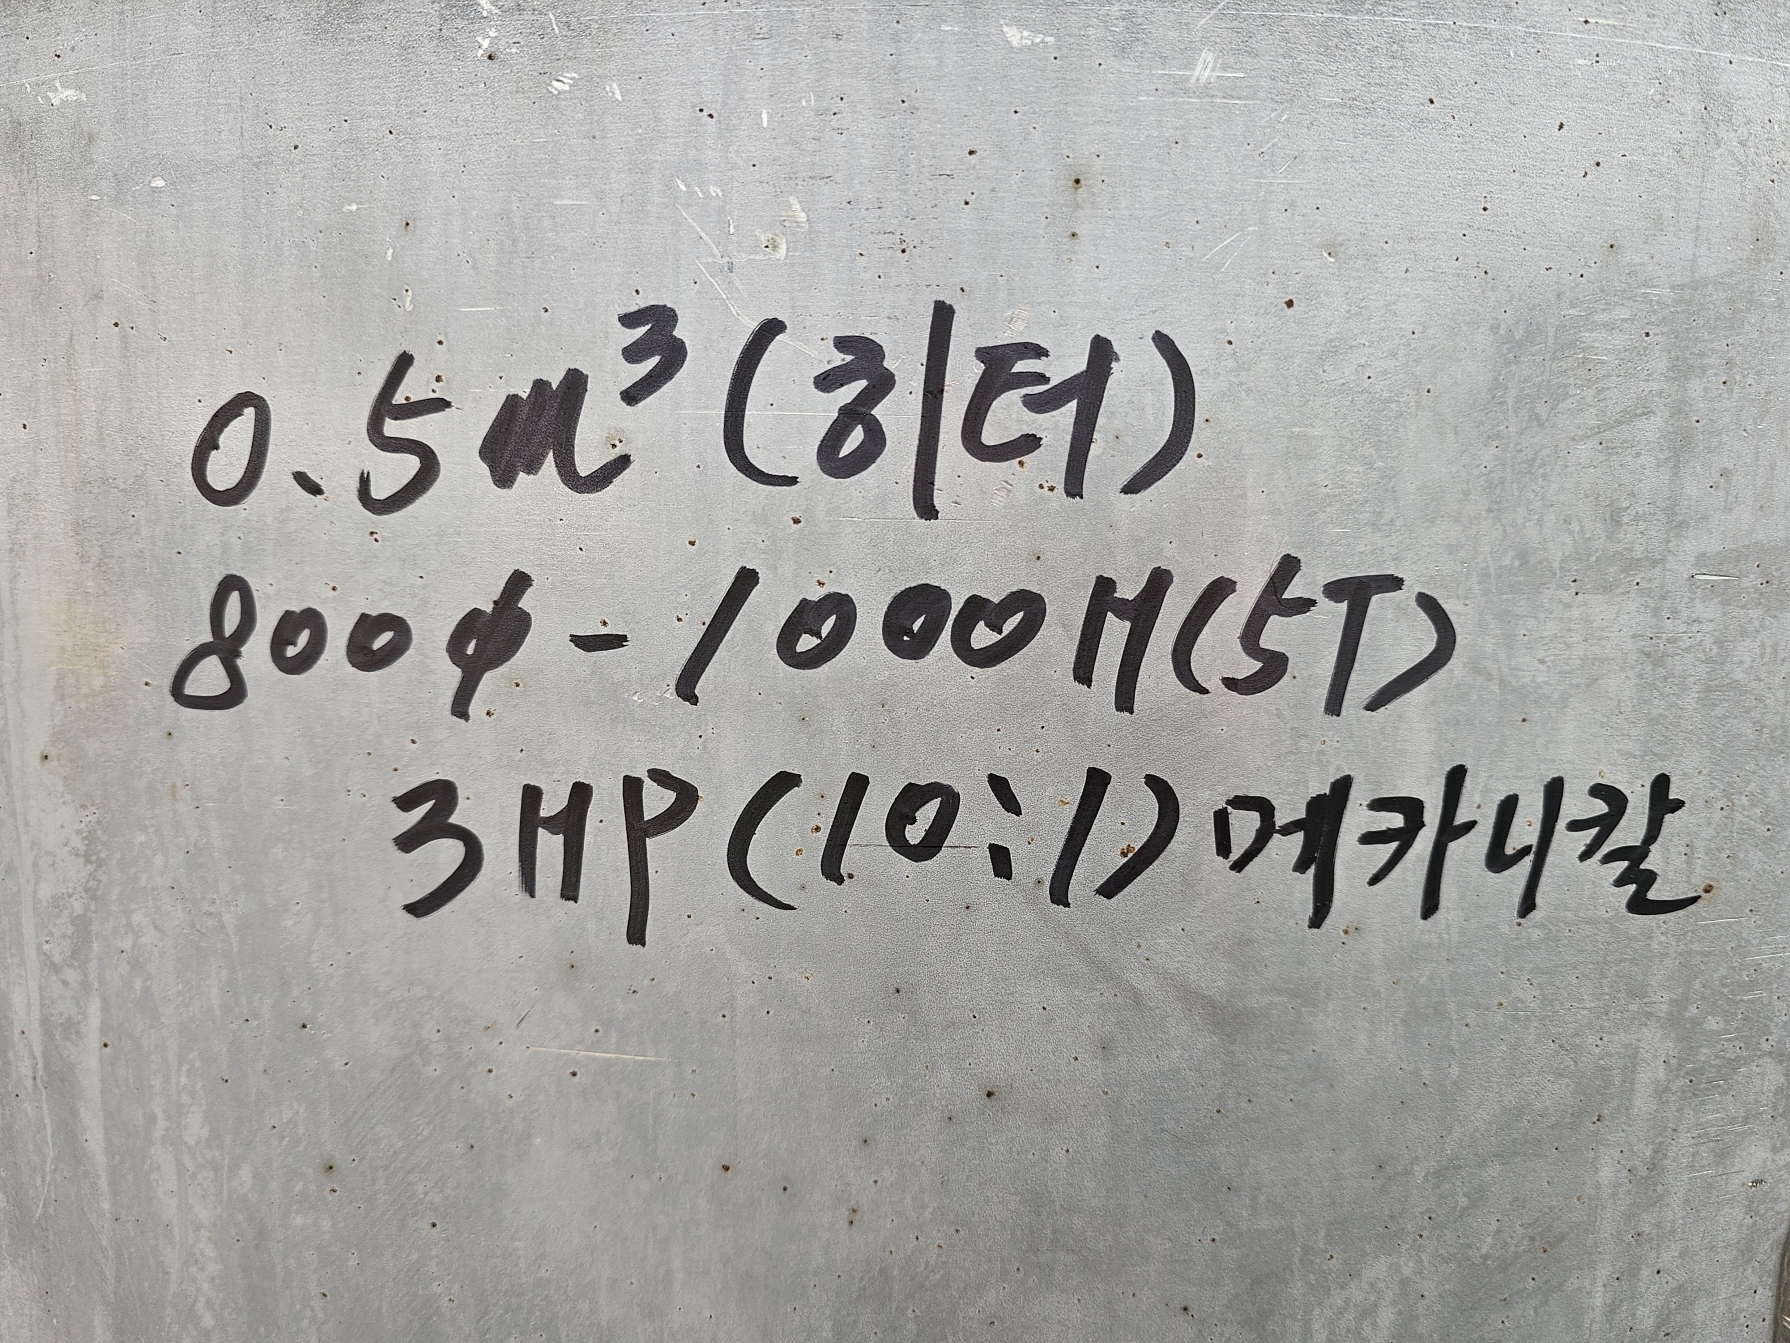 0.5m³(히터)
800φ-1000H(5T)
3HP(10:1)메카니칼